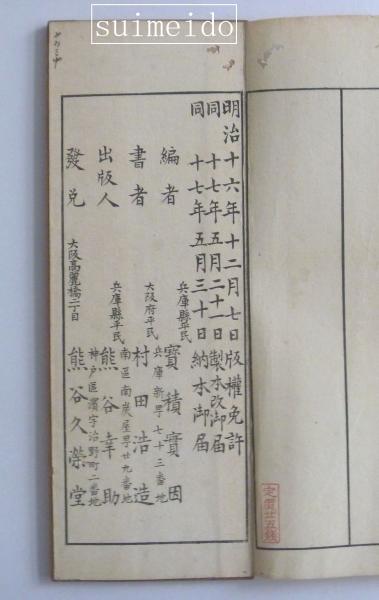 suimeido
明治十六年十二月七日版權免許
同十七年五月二十一日製本改御届
同十七年五月三十日納本御届
編者 兵庫縣平民 寶積實因
兵庫新手七十三番地
書者 大阪府平民 村田浩造
南區南炭屋町廿九番地
出版人 兵庫縣平民 熊谷幸助
神戸區濱宇治野町二番地
發兌 大阪高麗橋二丁目 熊谷久榮堂
定價廿五錢